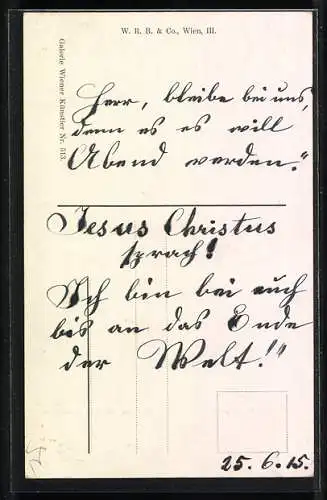 W. R. B. & Co., Wien, III.
Galerie Wiener Künstler Nr. 513.
Herr, bleibe bei uns,
denn es es will
Abend werden."
Jesus Christus
sprach!
Ich bin bei euch
bis an das Ende
der Welt!"
25. 6. 15.